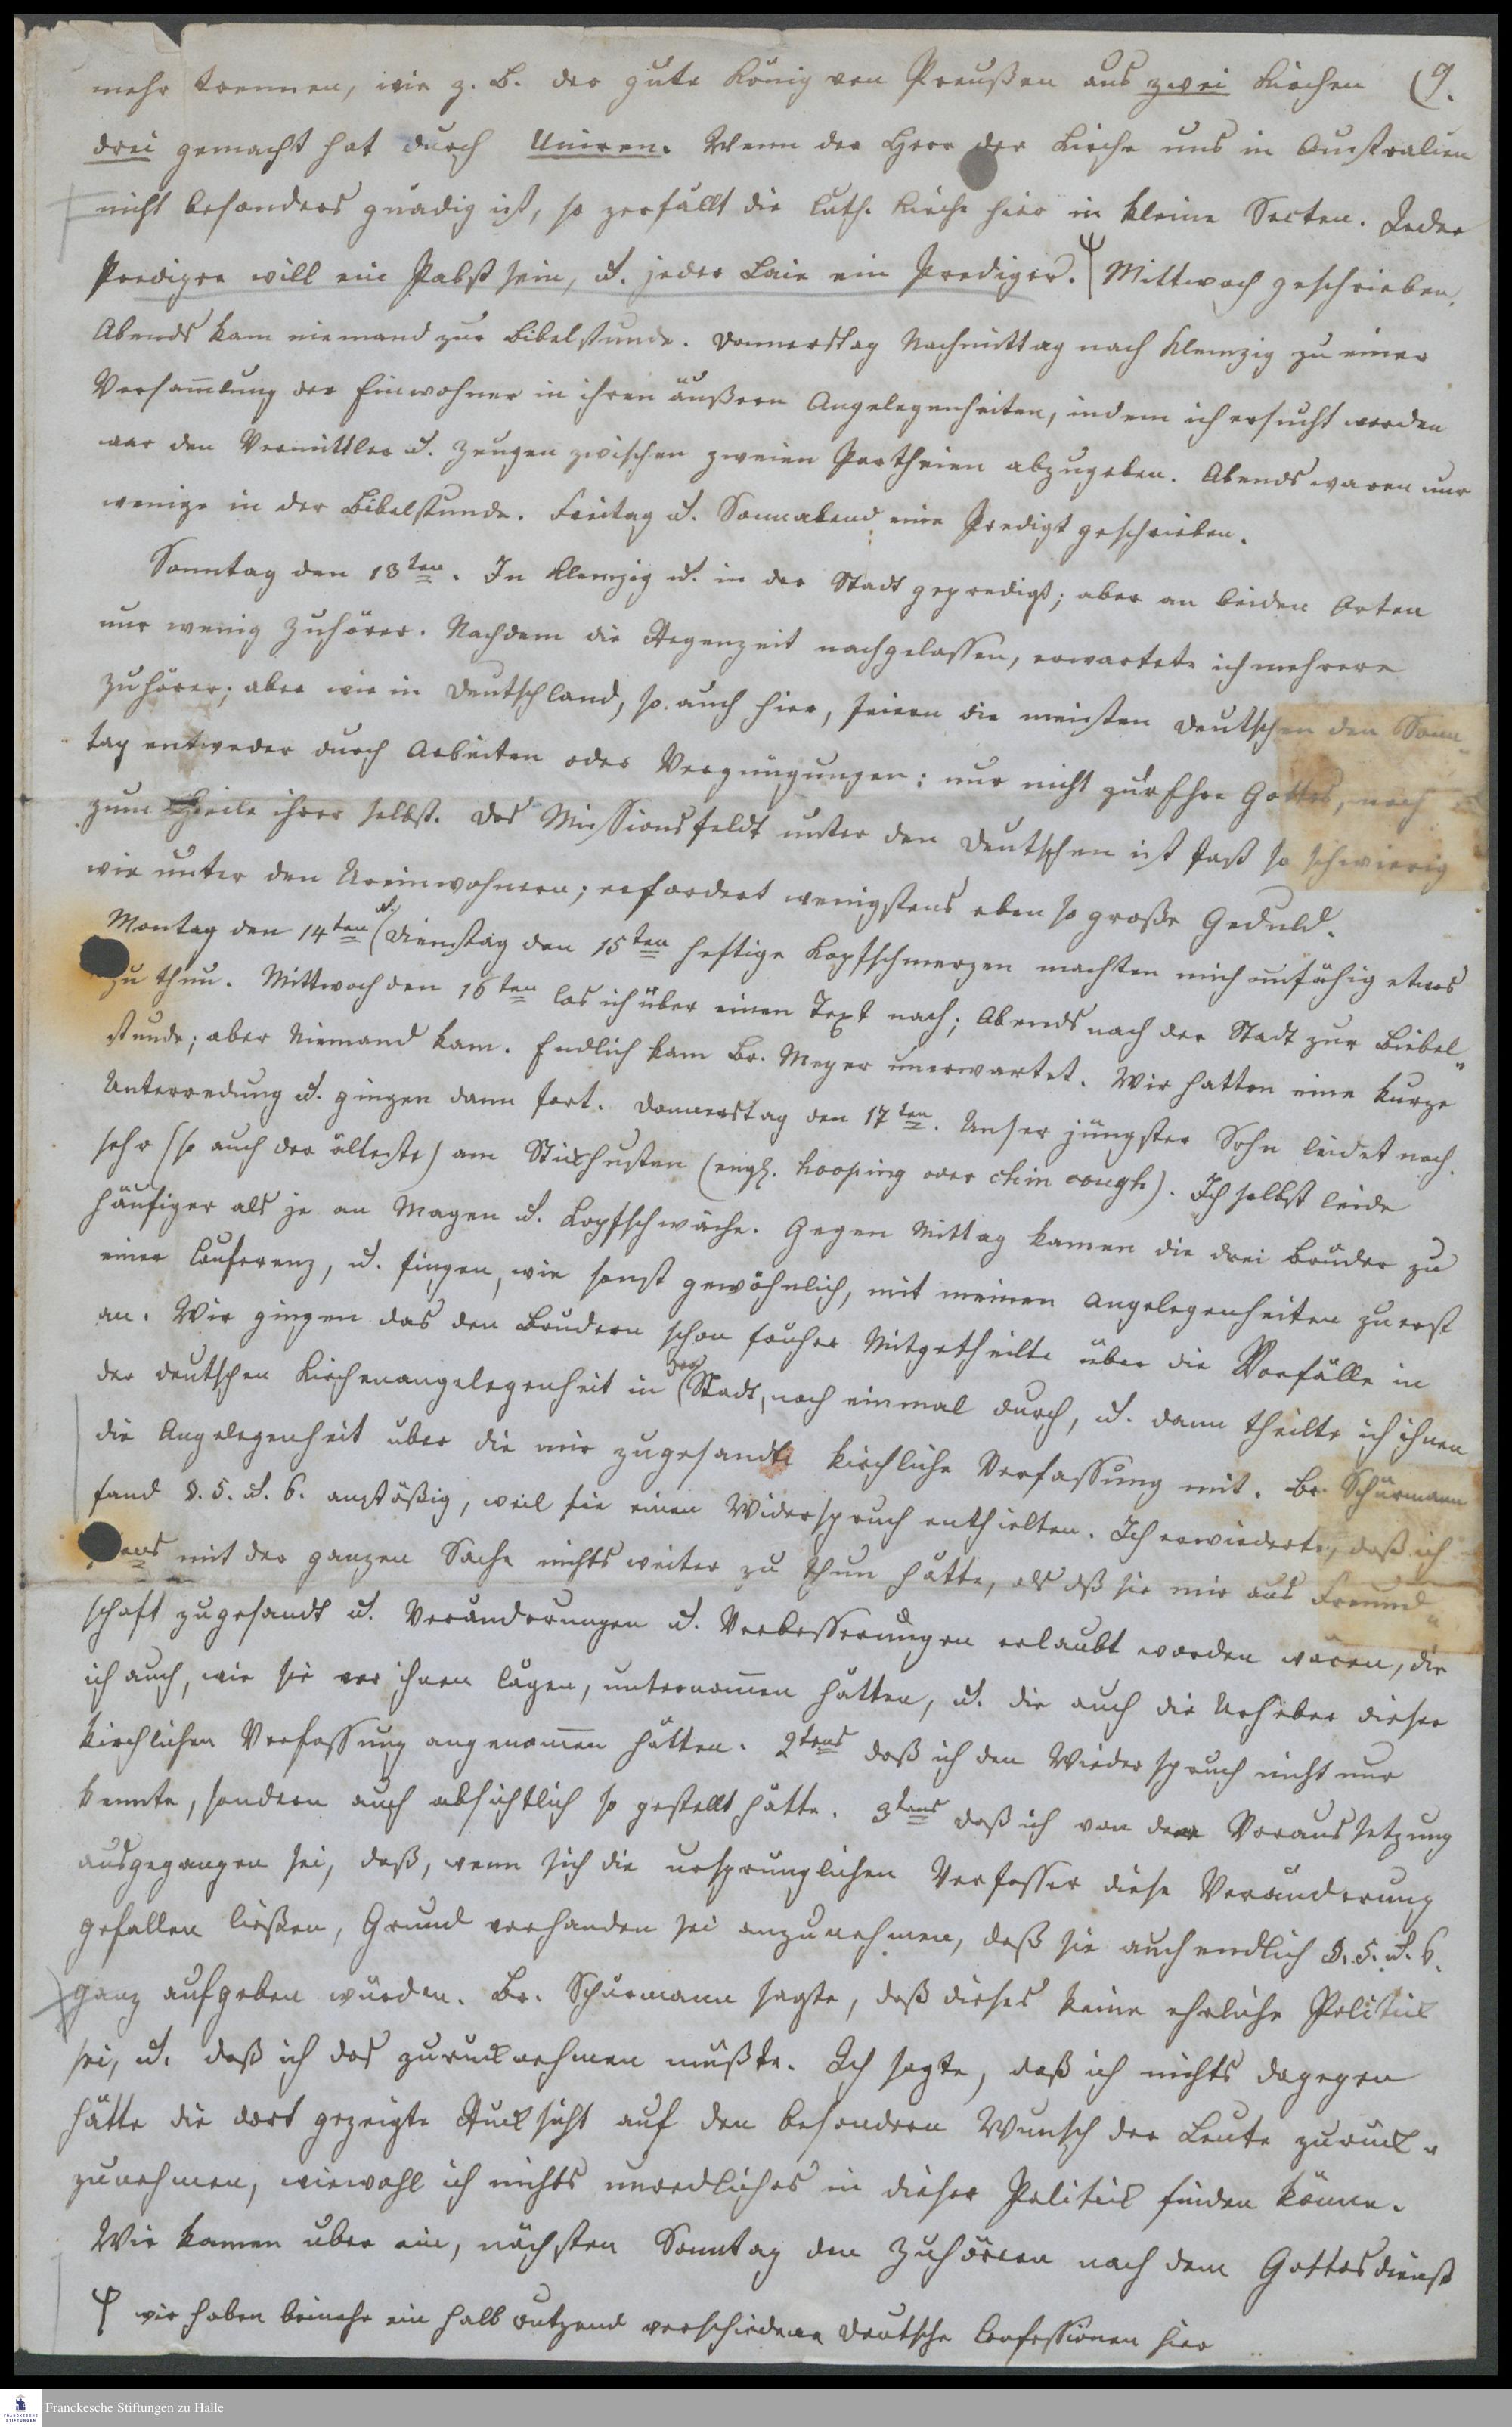 mehr trennen, wie z. B. der gute König von Preußen aus zwei Kirchen (9.
drei gemacht hat durch Uniren. Wenn der Herr der Kirche uns in Australien
nicht besonders gnädig ist, so zerfällt die luth. Kirche hier in kleine Secten. Jeder
Prediger will ein Pabst sein, u. jeder Laie ein Prediger. Ψ| Mittwoch geschrieben.
Abends kam niemand zur Bibelstunde. Donnerstag Nachmittag nach Klemzig zu einer
Versam̅lung der Einwohner in ihren äußern Angelegenheiten, indem ich ersucht worden
war den Vermittler u. Zeugen zwischen zweien Partheien abzugeben. Abends waren nur
wenige in der Bibelstunde. Freitag u. Sonnabend eine Predigt geschrieben.
Sonntag den 13ten. In Klemzig u. in der Stadt gepredigt; aber an beiden Orten
nur wenig Zuhörer. Nachdem die Regenzeit nachgelassen, erwartete ich mehrere
Zuhörer; aber wie in Deutschland, so auch hier, feiern die meisten Deutschen den Sonn-
tag entweder durch Arbeiten oder Vergnügungen: nur nicht zur Ehre Gottes, noch
zum Heile ihrer selbst. Das Missionsfeldt unter den Deutschen ist fast so schwierig
wie unter den Ureinwohnern; erfordert wenigstens eben so große Geduld.
Montag den 14ten u. Dienstag den 15ten heftige Kopfschmerzen machten mich unfähig etwas
zu thun. Mittwoch den 16ten las ich über einen Text nach; Abends nach der Stadt zur Biebel-
stunde; aber Niemand kam. Endlich kam Br. Meyer unerwartet. Wir hatten eine kurze
Unterredung u. gingen dann fort. Donnerstag den 17ten. Unser jüngster Sohn leidet noch
sehr (so auch der älteste) am Stickhusten (engl. hooping oder chin cough). Ich selbst leide
häufiger als je an Magen u. Kopfschwäche. Gegen Mittag kamen die drei Brüder zu
einer Conferenz, u. fingen, wie sonst gewöhnlich, mit meinen Angelegenheiten zuerst
an. Wir gingen das den Brudern schon fruher Mitgetheilte über die Vorfälle in
der deutschen Kirchenangelegenheit in der Stadt, noch einmal durch, u. dann theilte ich ihnen
die Angelegenheit über die mir zugesandte kirchliche Verfassung mit. Br. Schürmann
fand §. 5. u. 6. anstößig, weil sie einen Widerspruch enthielten. Ich erwiederte, daß ich
mit der ganzen Sache nichts weiter zu thun hätte, als dß sie mir aus Freund-
schaft zugesandt u. Veränderungen u. Verbesserungen erlaubt worden wären, die
ich auch, wie sie vor ihnen lägen, unternom̅en hätten, u. die auch die Urheber dieser
kirchlichen Verfassung angenom̅en hätten. 2tens daß ich den Wiederspruch nicht nur
kennte, sondern auch absichtlich so gestellt hätte. 3tens daß ich von der Voraussetzung
ausgegangen sei, daß, wenn sich die ursprunglichen Verfasser diese Veränderung
gefallen ließen, Grund vorhanden sei anzunehmen, daß sie auch endlich §. 5. u. 6.
ganz aufgeben würden. Br. Schürmann sagte, daß dieses keine ehrliche Politick
sei, u. daß ich das zurucknehmen müßte. Ich sagte, daß ich nichts dagegen
hätte die dort gezeigte Rucksicht auf den besondern Wunsch der Leute zurück-
zunehmen, wiewohl ich nichts unredliches in dieser Politick finden könne.
Wir kamen uber ein, nächsten Sonntag den Zuhörern nach dem Gottesdienst
Ψ wir haben beinahe ein halb dutzend verschiedene deutsche Confessionen hier
Franckesche Stiftungen zu Halle